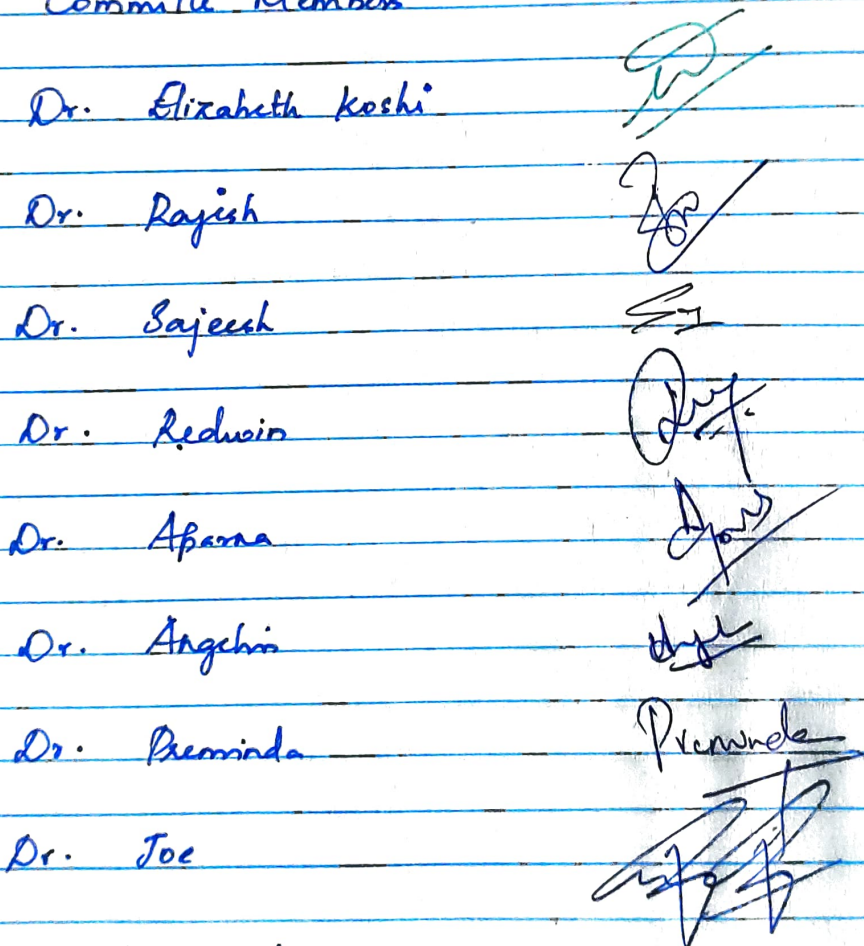 Committe Members
Dr. Elizabeth Koshi
Dr. Rajish
Dr. Sajeesh
Dr. Redwin
Dr. Aparna
Dr. Angelin
Dr. Preminda Preminda
Dr. Joe